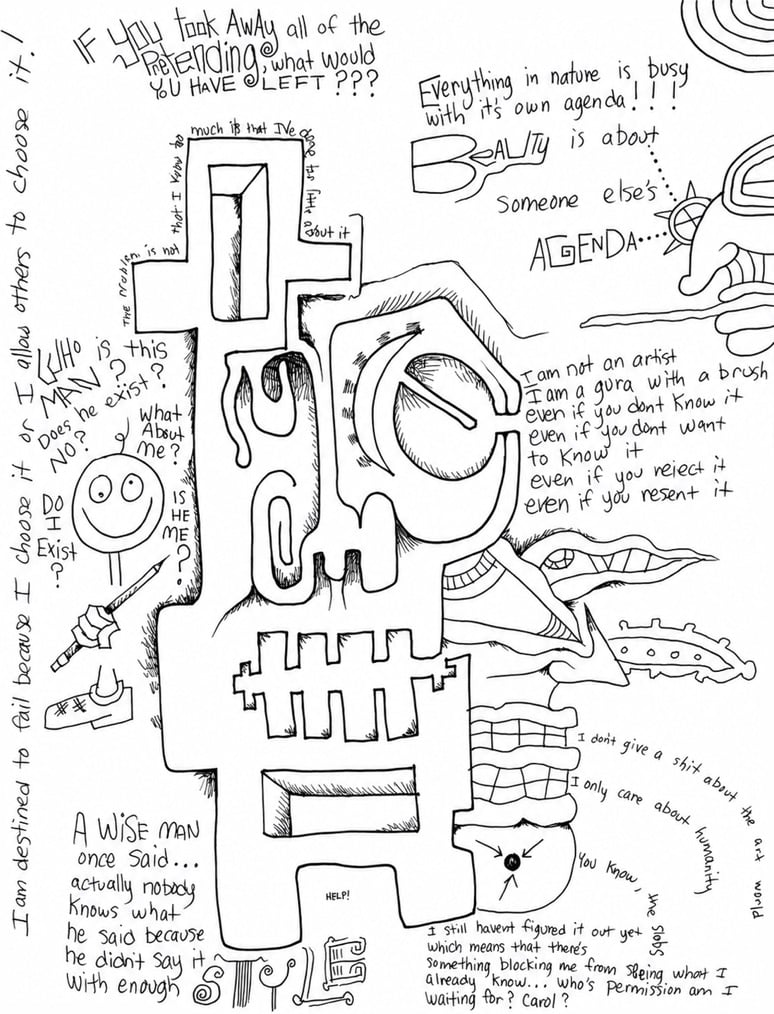 IF YOU took AWAy all of the
PReTENDiNg, what would
YOU HAVE LEFT ???
Everything in nature is busy
with it's own agenda!!!
BEAUTy is about
someone else's
AGENDA
I am destined to fail because I choose it or I allow others to choose it.!
The Problem is not that I know too much it's that I've done too little about it
WHO is this
MAN?
Does he exist?
NO?
What
About
me?
DO
I
Exist
?
IS
HE
ME
?
I am not an artist
I am a gura with a brush
even if you dont know it
even if you dont want
to know it
even if you reject it
even if you resent it
I don't give a shit about the art world
I only care about humanity
You know, the slobs
A WiSE MAN
once said...
actually nobody
knows what
he said because
he didn't say it
with enough STYLE
HELP!
I still haven't figured it out yet
which means that there's
something blocking me from seeing what I
already know... who's permission am I
waiting for? Carol?